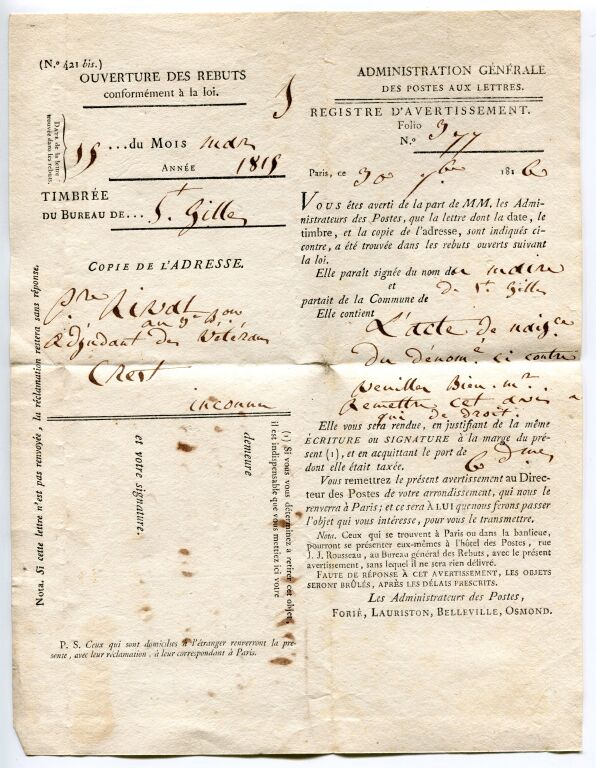 (N.º 421 bis.)
OUVERTURE DES REBUTS
conformément à la loi.
Date de la lettre
trouvée dans les rebuts.
15 ... du Mois mars
ANNÉE 1815
TIMBRÉE
DU BUREAU DE... St. Gilles
COPIE DE L'ADRESSE.
pre Rivat
au 9e Bon
Adjudant des Vétérans
Crest
inconnu
Nota. Si cette lettre n'est pas renvoyée, la réclamation restera sans réponse.
(1) Si vous vous déterminez à retirer cet objet,
il est indispensable que vous mettiez ici votre
demeure
et votre signature.
P. S. Ceux qui sont domiciliés à l'étranger renverront la pré-
sente, avec leur réclamation, à leur correspondant à Paris.
ADMINISTRATION GÉNÉRALE
DES POSTES AUX LETTRES.
REGISTRE D'AVERTISSEMENT.
Folio
N.º 377
Paris, ce 30 7bre 1816
VOUS êtes averti de la part de MM. les Admi-
nistrateurs des Postes, que la lettre dont la date, le
timbre, et la copie de l'adresse, sont indiqués ci-
contre, a été trouvée dans les rebuts ouverts suivant
la loi.
Elle paraît signée du nom du maire
et
partait de la Commune de de St Gilles
Elle contient
L'acte de naisce
du dénomé ci contre
veuillez Bien mr.
Remettre cet avis a
qui de droit.
Elle vous sera rendue, en justifiant de la même
ÉCRITURE ou SIGNATURE à la marge du pré-
sent (1), et en acquittant le port de 6 Dmes
dont elle était taxée.
Vous remettrez le présent avertissement au Direc-
teur des Postes de votre arrondissement, qui nous le
renverra à Paris; et ce sera À LUI que nous ferons passer
l'objet qui vous intéresse, pour vous le transmettre.
Nota. Ceux qui se trouvent à Paris ou dans la banlieue,
pourront se présenter eux-mêmes à l'hôtel des Postes, rue
J. J. Rousseau, au Bureau général des Rebuts, avec le présent
avertissement, sans lequel il ne sera rien délivré.
FAUTE DE RÉPONSE À CET AVERTISSEMENT, LES OBJETS
SERONT BRÛLÉS, APRÈS LES DÉLAIS PRESCRITS.
Les Administrateurs des Postes,
FORIÉ, LAURISTON, BELLEVILLE, OSMOND.